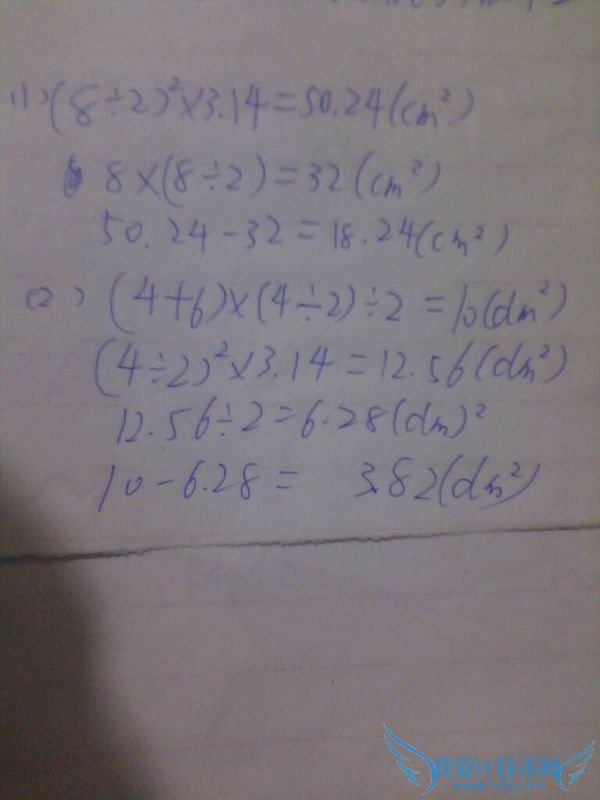 (1) (8÷2)²×3.14=50.24(cm²)
8×(8÷2)=32(cm²)
50.24-32=18.24(cm²)
(2) (4+6)×(4÷2)÷2=10(dm²)
(4÷2)²×3.14=12.56(dm²)
12.56÷2=6.28(dm)²
10-6.28= 3.82(dm²)